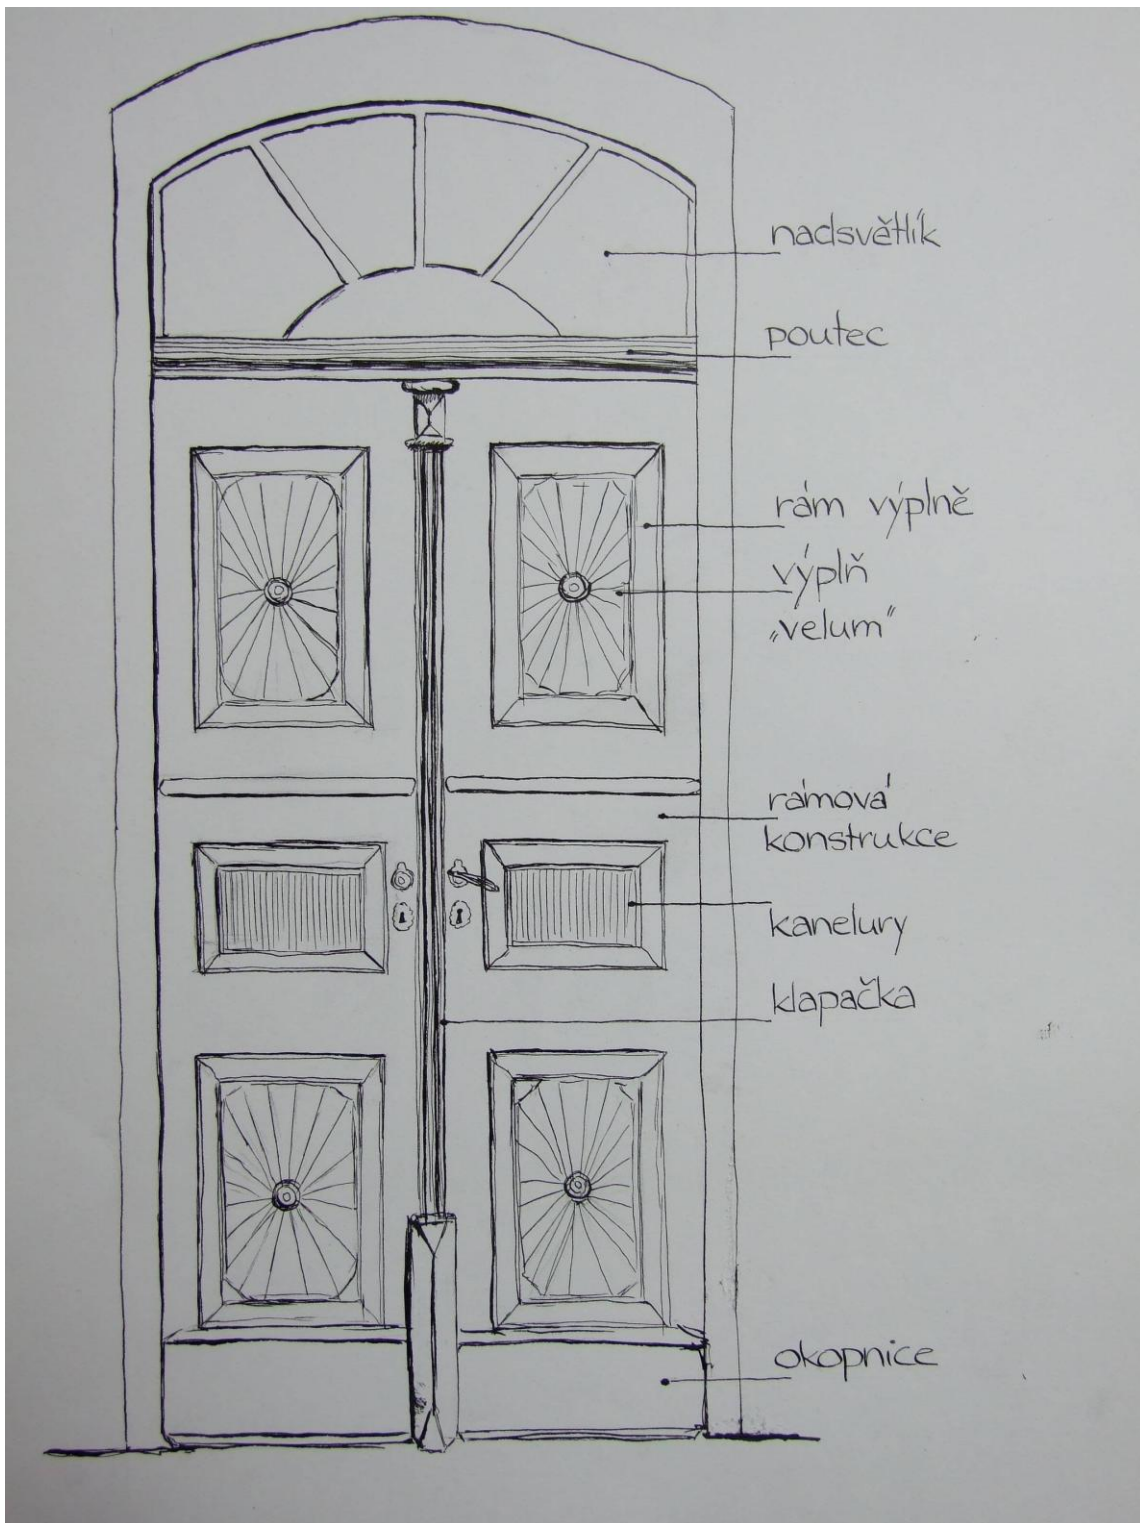 nadsvětlík
poutec
rám výplně
výplň
„velum"
rámová
konstrukce
kanelury
klapačka
okopnice